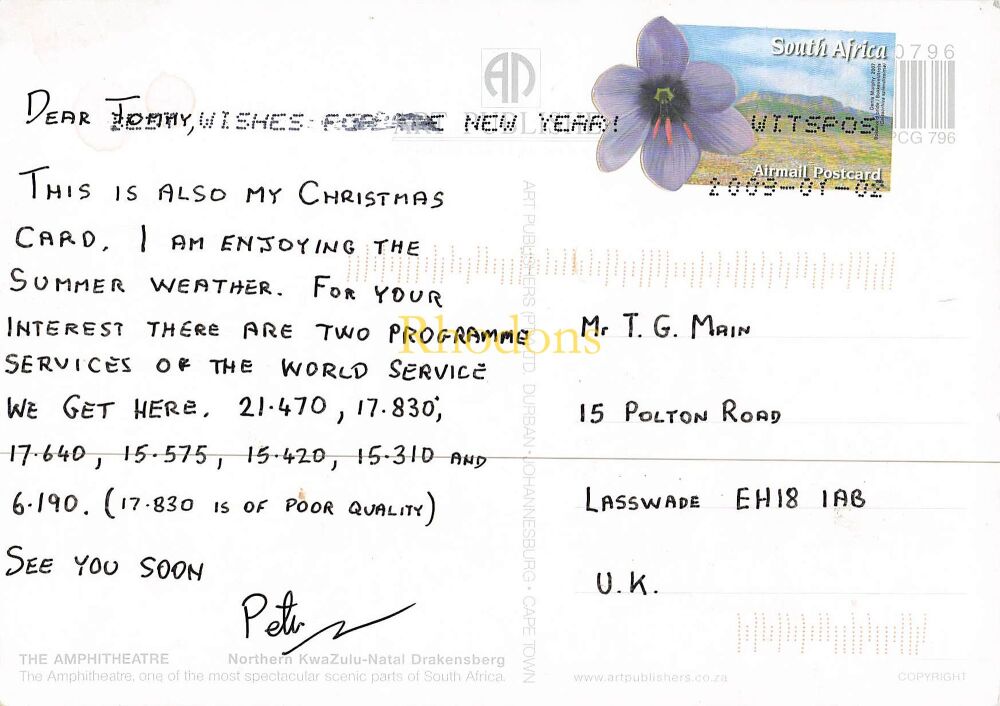 DEAR TOMMY,
WISHES NEW YEAR!
THIS IS ALSO MY CHRISTMAS
CARD. I AM ENJOYING THE
SUMMER WEATHER. FOR YOUR
INTEREST THERE ARE TWO PROGRAMME
SERVICES OF THE WORLD SERVICE
WE GET HERE. 21.470, 17.830,
17.640, 15.575, 15.420, 15.310 AND
6.190. (17.830 IS OF POOR QUALITY)
SEE YOU SOON
Peter
THE AMPHITHEATRE Northern KwaZulu-Natal Drakensberg
The Amphitheatre, one of the most spectacular scenic parts of South Africa.
ART PUBLISHERS (PTY) LTD. DURBAN • JOHANNESBURG • CAPE TOWN
AP
South Africa
Airmail Postcard
WITSPOS
2009-01-02
0796
PCG 796
Mr T. G. MAIN
15 POLTON ROAD
LASSWADE EH18 1AB
U.K.
www.artpublishers.co.za
COPYRIGHT
Rhodons